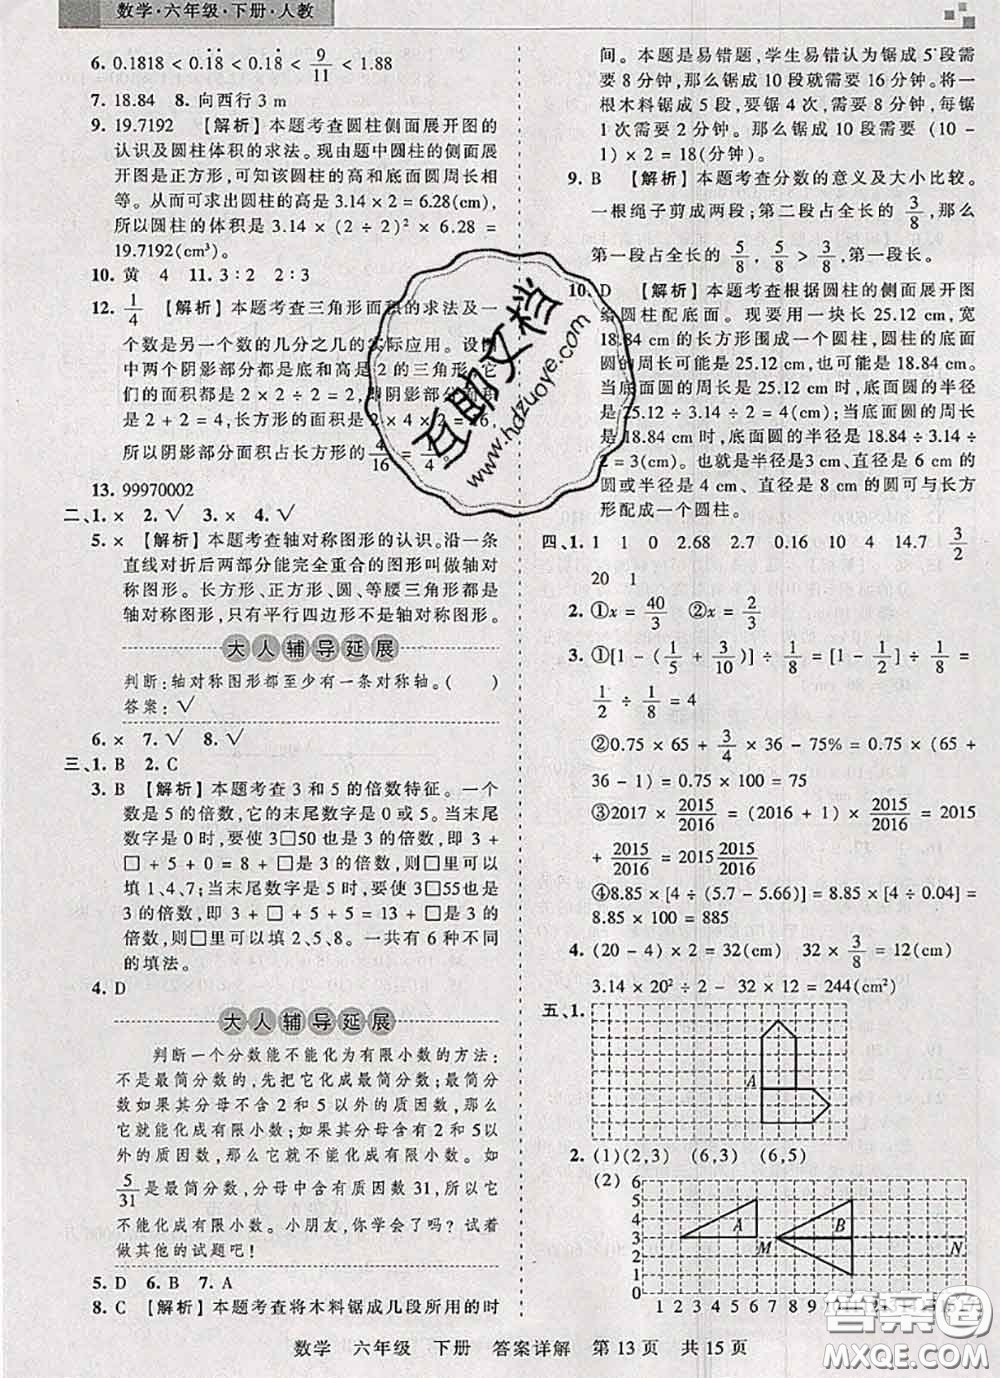 数学·六年级·下册·人教
6. 0.1818 < 0.1̇8̇ < 0.18̇ < 9/11 < 1.88
7. 18.84　8. 向西行 3 m
9. 19.7192　【解析】本题考查圆柱侧面展开图的
认识及圆柱体积的求法。现由题中圆柱的侧面展
开图是正方形,可知该圆柱的高和底面圆周长相
等。从而可求出圆柱的高是 3.14 × 2 = 6.28(cm),
所以圆柱的体积是 3.14 × (2 ÷ 2)² × 6.28 =
19.7192(cm³)。
10. 黄　4　11. 3∶2　2∶3
12. 1/4　【解析】本题考查三角形面积的求法及一
个数是另一个数的几分之几的实际应用。设图
中两个阴影部分都是底和高是 2 的三角形,它
们的面积都是 2 × 2 ÷ 2 = 2,即阴影部分的面积
是 2 + 2 = 4,长方形的面积是 4 × 4 = 16,
所以阴影部分面积占长方形的 4/16 = 1/4。
13. 99970002
二、1. ×　2. √　3. ×　4. √
5. ×　【解析】本题考查轴对称图形的认识。沿一条
直线对折后两部分能完全重合的图形叫做轴对
称图形。长方形、正方形、圆、等腰三角形都是
轴对称图形,只有平行四边形不是轴对称图形。
大人辅导延展
判断:轴对称图形都至少有一条对称轴。(　　)
答案:√
6. ×　7. √　8. √
三、1. B　2. C
3. B　【解析】本题考查 3 和 5 的倍数特征。一个
数是 5 的倍数,它的末尾数字是 0 或 5。当末尾
数字是 0 时,要使 3□50 也是 3 的倍数,即 3 +
□ + 5 + 0 = 8 + □是 3 的倍数,则□里可以
填 1、4、7;当末尾数字是 5 时,要使 3□55也是
3 的倍数,即 3 + □ + 5 + 5 = 13 + □是 3 的
倍数,则□里可以填 2、5、8。一共有 6 种不同
的填法。
4. D
大人辅导延展
判断一个分数能不能化为有限小数的方法:
不是最简分数的,先把它化成最简分数;最简分
数如果其分母不含 2 和 5 以外的质因数,那么
它就能化成有限小数;如果其分母含有 2 和 5以
外的质因数,那么它就不能化成有限小数。如
5/31 是最简分数,分母中含有质因数 31,所以它
不能化成有限小数。小朋友,你学会了吗?试着
做其他的试题吧!
5. D　6. B　7. A
8. C　【解析】本题考查将木料锯成几段所用的时
间。本题是易错题,学生易错认为锯成 5 段需
要 8 分钟,那么锯成 10 段就需要 16 分钟。将一
根木料锯成 5 段,要锯 4 次,需要 8 分钟,每锯
1 次需要 2 分钟。那么锯成 10 段需要 (10 -
1) × 2 = 18(分钟)。
9. B　【解析】本题考查分数的意义及大小比较。
一根绳子剪成两段;第二段占全长的 3/8,那么
第一段占全长的 5/8, 5/8 > 3/8,所以第一段长。
10. D　【解析】本题考查根据圆柱的侧面展开图
给圆柱配底面。现要用一块长 25.12 cm,宽
18.84 cm 的长方形围成一个圆柱,圆柱的底面
圆的周长可能是 25.12 cm,也可能是 18.84 cm。
当底面圆的周长是 25.12 cm 时,底面圆的半径
是 25.12 ÷ 3.14 ÷ 2 = 4(cm);当底面圆的周长
是 18.84 cm 时,底面圆的半径是 18.84 ÷ 3.14 ÷
2 = 3(cm)。也就是半径是 3 cm、直径是 6 cm 的
圆或半径是 4 cm、直径是 8 cm 的圆可与长方
形配成一个圆柱。
四、1. 1　1　0　2.68　2.7　0.16　10　4　14.7　3/2
20　1
2. ①x = 40/3　②x = 2/3
3. ①[1 - (1/5 + 3/10)] ÷ 1/8 = [1 - 1/2] ÷ 1/8 =
1/2 ÷ 1/8 = 4
②0.75 × 65 + 3/4 × 36 - 75% = 0.75 × (65 +
36 - 1) = 0.75 × 100 = 75
③2017 × 2015/2016 = (2016 + 1) × 2015/2016 = 2015
+ 2015/2016 = 2015 2015/2016
④8.85 × [4 ÷ (5.7 - 5.66)] = 8.85 × [4 ÷ 0.04] =
8.85 × 100 = 885
4. (20 - 4) × 2 = 32(cm)　32 × 3/8 = 12(cm)
3.14 × 20² ÷ 2 - 32 × 12 = 244(cm²)
五、1.
A
2. (1)(2,3)　(6,3)　(6,5)
(2)
6
5
4
3
2
1
0
A
M
B
N
1 2 3 4 5 6 7 8 9 10 11 12
数学　六年级　下册　答案详解　第 13 页　共 15 页
互助文档
www.hdzuoye.com
答案圈
MXQE.COM